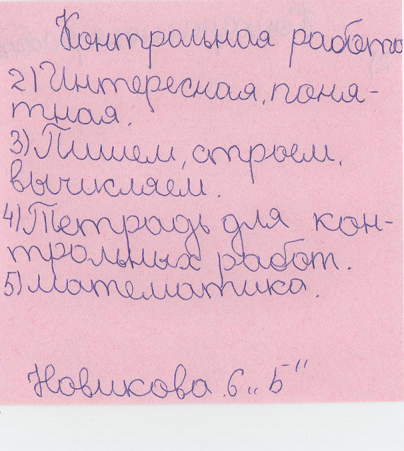 Контрольная работа
2) Интересная, поня-
тная.
3) Пишем, строем,
вычикляем.
4) Тетрадь для кон-
трольных работ.
5) математика.
Новикова 6 „Б"